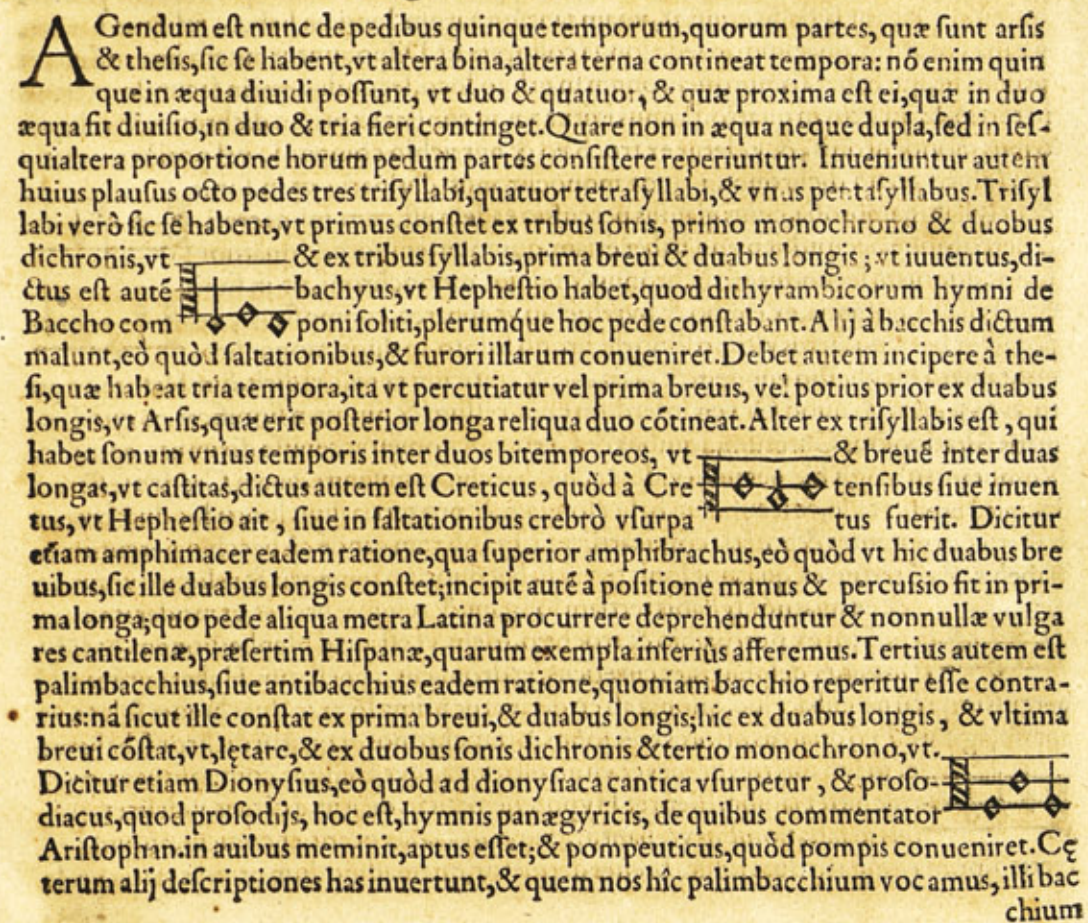 AGendum eſt nunc de pedibus quinque temporum,quorum partes, quæ ſunt arſis
& theſis,ſic ſe habent,vt altera bina,altera terna contineat tempora: nõ enim quin
que in æqua diuidi poſſunt, vt duo & quatuor, & quæ proxima eſt ei,quæ in duo
æqua fit diuiſio,in duo & tria fieri continget.Quare non in æqua neque dupla,ſed in ſeſ-
quialtera proportione horum pedum partes conſiſtere reperiuntur. Inueniuntur autem
huius plauſus octo pedes tres triſyllabi,quatuor tetraſyllabi,& vnus pentaſyllabus.Triſyl
labi verò ſic ſe habent,vt primus conſtet ex tribus ſonis, primo monochrono & duobus
dichronis,vt & ex tribus ſyllabis,prima breui & duabus longis ; vt iuuentus,di-
ctus eſt autẽ bachyus,vt Hepheſtio habet,quod dithyrambicorum hymni de
Baccho com poni ſoliti,plerumq́ue hoc pede conſtabant.Alij à bacchis dictum
malunt,eò quòd ſaltationibus,& furori illarum conueniret.Debet autem incipere à the-
ſi,quæ habeat tria tempora,ita vt percutiatur vel prima breuis, vel potius prior ex duabus
longis,vt Arſis,quæ erit poſterior longa reliqua duo cõtineat.Alter ex triſyllabis eſt , qui
habet ſonum vnius temporis inter duos bitemporeos, vt & breuẽ inter duas
longas,vt caſtitas,dictus autem eſt Creticus , quòd à Cre tenſibus ſiue inuen
tus, vt Hepheſtio ait , ſiue in ſaltationibus crebrò vſurpa tus fuerit. Dicitur
etiam amphimacer eadem ratione,qua ſuperior amphibrachus,eò quòd vt hic duabus bre
uibus,ſic ille duabus longis conſtet;incipit autẽ à poſitione manus & percuſsio fit in pri-
ma longa;quo pede aliqua metra Latina procurrere deprehenduntur & nonnullæ vulga
res cantilenæ,præſertim Hiſpanæ,quarum exempla inferiùs afferemus.Tertius autem eſt
palimbacchius,ſiue antibacchius eadem ratione,quoniam bacchio reperitur eſſe contra-
rius:nã ſicut ille conſtat ex prima breui,& duabus longis;hic ex duabus longis , & vltima
breui cõſtat,vt,lętare,& ex duobus ſonis dichronis & tertio monochrono,vt.
Dicitur etiam Dionyſius,eò quòd ad dionyſiaca cantica vſurpetur , & proſo-
diacus,quod proſodijs, hoc eſt,hymnis panægyricis, de quibus commentator
Ariſtophan.in auibus meminit,aptus eſſet;& pompeuticus,quòd pompis conueniret.Cę
terum alij deſcriptiones has inuertunt,& quem nos hîc palimbacchium vocamus, illi bac
chium